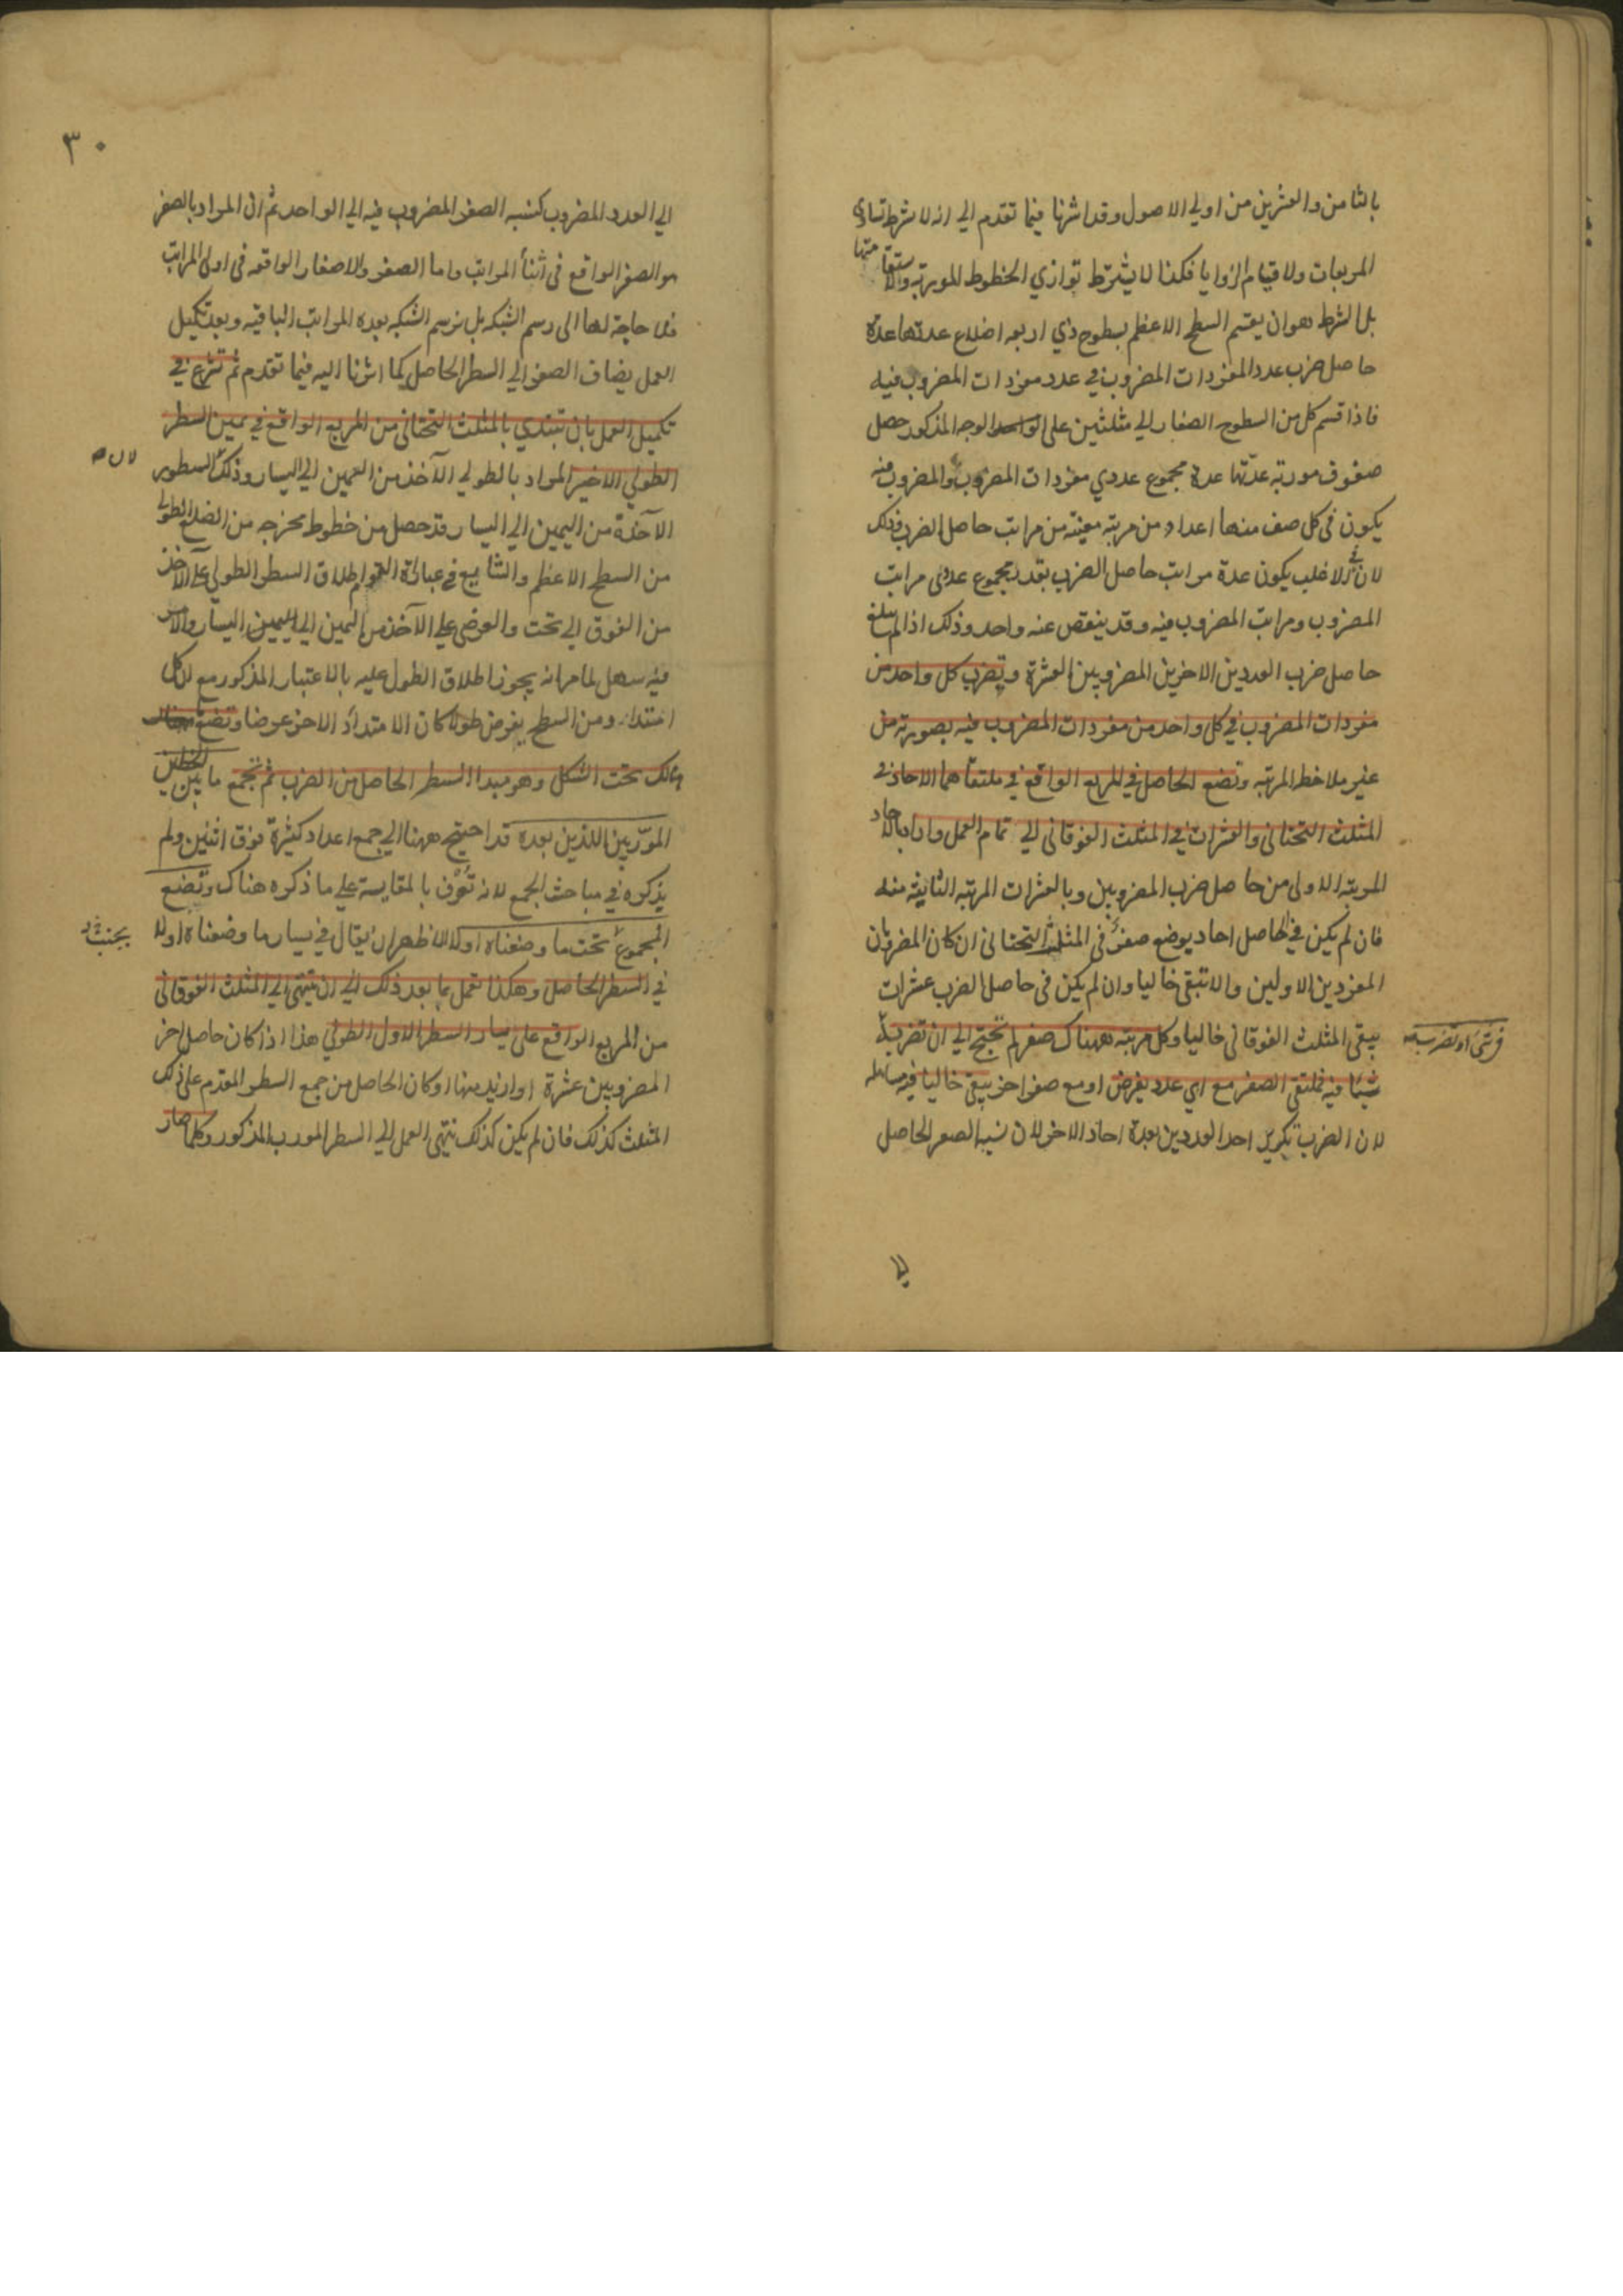 بالثامن والعشرين من اولي الاصول وقد اشرنا فيما تقدم الي انه لا شرط تساوي
المربعات ولا قيام الزوايا فكذا لا يشترط توازي الخطوط الموربة واستقامتها
بل الشرط هو ان يقسم السطح الاعظم بسطوح ذي اربعه اضلاع عدتها عدة
حاصل ضرب عدد المفردات المضروب في عدد مفردات المضروب فيه
فاذا قسم كل من السطوح الصغار الي مثلثين على الوجه المذكور حصل
صفوف موربه عدتها عدة مجموع عددي مفردات المضروب والمضروب فيه
يكون في كل صف منها اعداد من مرتبه معينه من مراتب حاصل الضرب وذلك
لان في الاغلب يكون عدة مراتب حاصل الضرب بقدر مجموع عددى مراتب
المضروب ومراتب المضروب فيه وقد ينقص عنه واحد وذلك اذا لم يبلغ
حاصل ضرب العددين الاخرين المضروبين العشرة وتضرب كل واحد من
مفردات المضروب في كل واحد من مفردات المضروب فيه بصورته من
غير ملاحظ المرتبه وتضع الحاصل في المربع الواقع في ملتقاهما الاحاد في
المثلث التحتانى والعشرات في المثلث الفوقانى الي تمام العمل واراد بالاحاد
المرتبه الاولى من حاصل ضرب المضروبين وبالعشرات المرتبه الثانيه منه
فان لم يكن في الحاصل احاد يوضع صفر في المثلث التحتانى ان كان المضروبان
المفردين الاولين والا تبقى خاليا وان لم يكن في حاصل الضرب عشرات
يبقى المثلث الفوقانى خاليا وكل مرتبه هناك صفر لم تحتج الي ان تضربه
شيئا فيه فملتقى الصفر مع اي عدد يفرض او مع صفر اخر يبقى خاليا فيه مساهله
لان الضرب تكرير احد العددين بعدة احاد الاخر لان نسبه الصفر الحاصل
٣٠
الي العدد المضروب كنسبه الصفر المضروب فيه الي الواحد ثم ان المراد بالصفر
هو الصفر الواقع في اثنأ المراتب واما الصفر والاصفار الواقعه في اولى المراتب
فلا حاجة لها الى رسم الشبكه بل نرسم الشبكه بعده المراتب الباقيه وبعد تكميل
العمل يضاف الصفر الي السطر الحاصل كما اشرنا اليه فيما تقدم ثم تشرع في
تكميل العمل بان تبتدي بالمثلث التحتانى من المربع الواقع في يمين السطر
الطولي الاخير المراد بالطولي الآخذ من اليمين الي اليسار وذلك السطور
الآخذة من اليمين الي اليسار قد حصل من خطوط مخرجه من الضلع الطولي
من السطح الاعظم والشايع في عبارة القوم اطلاق السطر الطولي على الآخذ
من الفوق الي تحت والعرضى علي الآخذ من اليمين الي اليسار والامر
فيه سهل لما مر انه يجوز اطلاق الطول عليه بالاعتبار المذكور مع ان كل
امتداد من السطح يفرض طولا كان الامتداد الاخر عرضا وتضع
ذلك تحت الشكل وهو مبدا السطر الحاصل من الضرب ثم تجمع ما بين الخطين
المورّبين اللذين بعده قد احتيج ههنا الي جمع اعداد كثيرة فوق اثنين ولم
يذكره في مباحث الجمع لانه تعرف بالمقايسة علي ما ذكره هناك وتضع
المجموع تحت ما وضعناه اولا الاظهر ان يقال في يسار ما وضعناه اولا
في السطر الحاصل وهكذا تعمل بما بعد ذلك الي ان تنتهى الي المثلث الفوقانى
من المربع الواقع على يسار السطر الاول الطولي هذا اذا كان حاصل اخر
المضروبين عشرة او ازيد منها او كان الحاصل من جمع السطر المقدم على ذلك
المثلث كذلك فان لم يكن كذلك تنتهى العمل الي السطر المورب المذكور وكلما صار